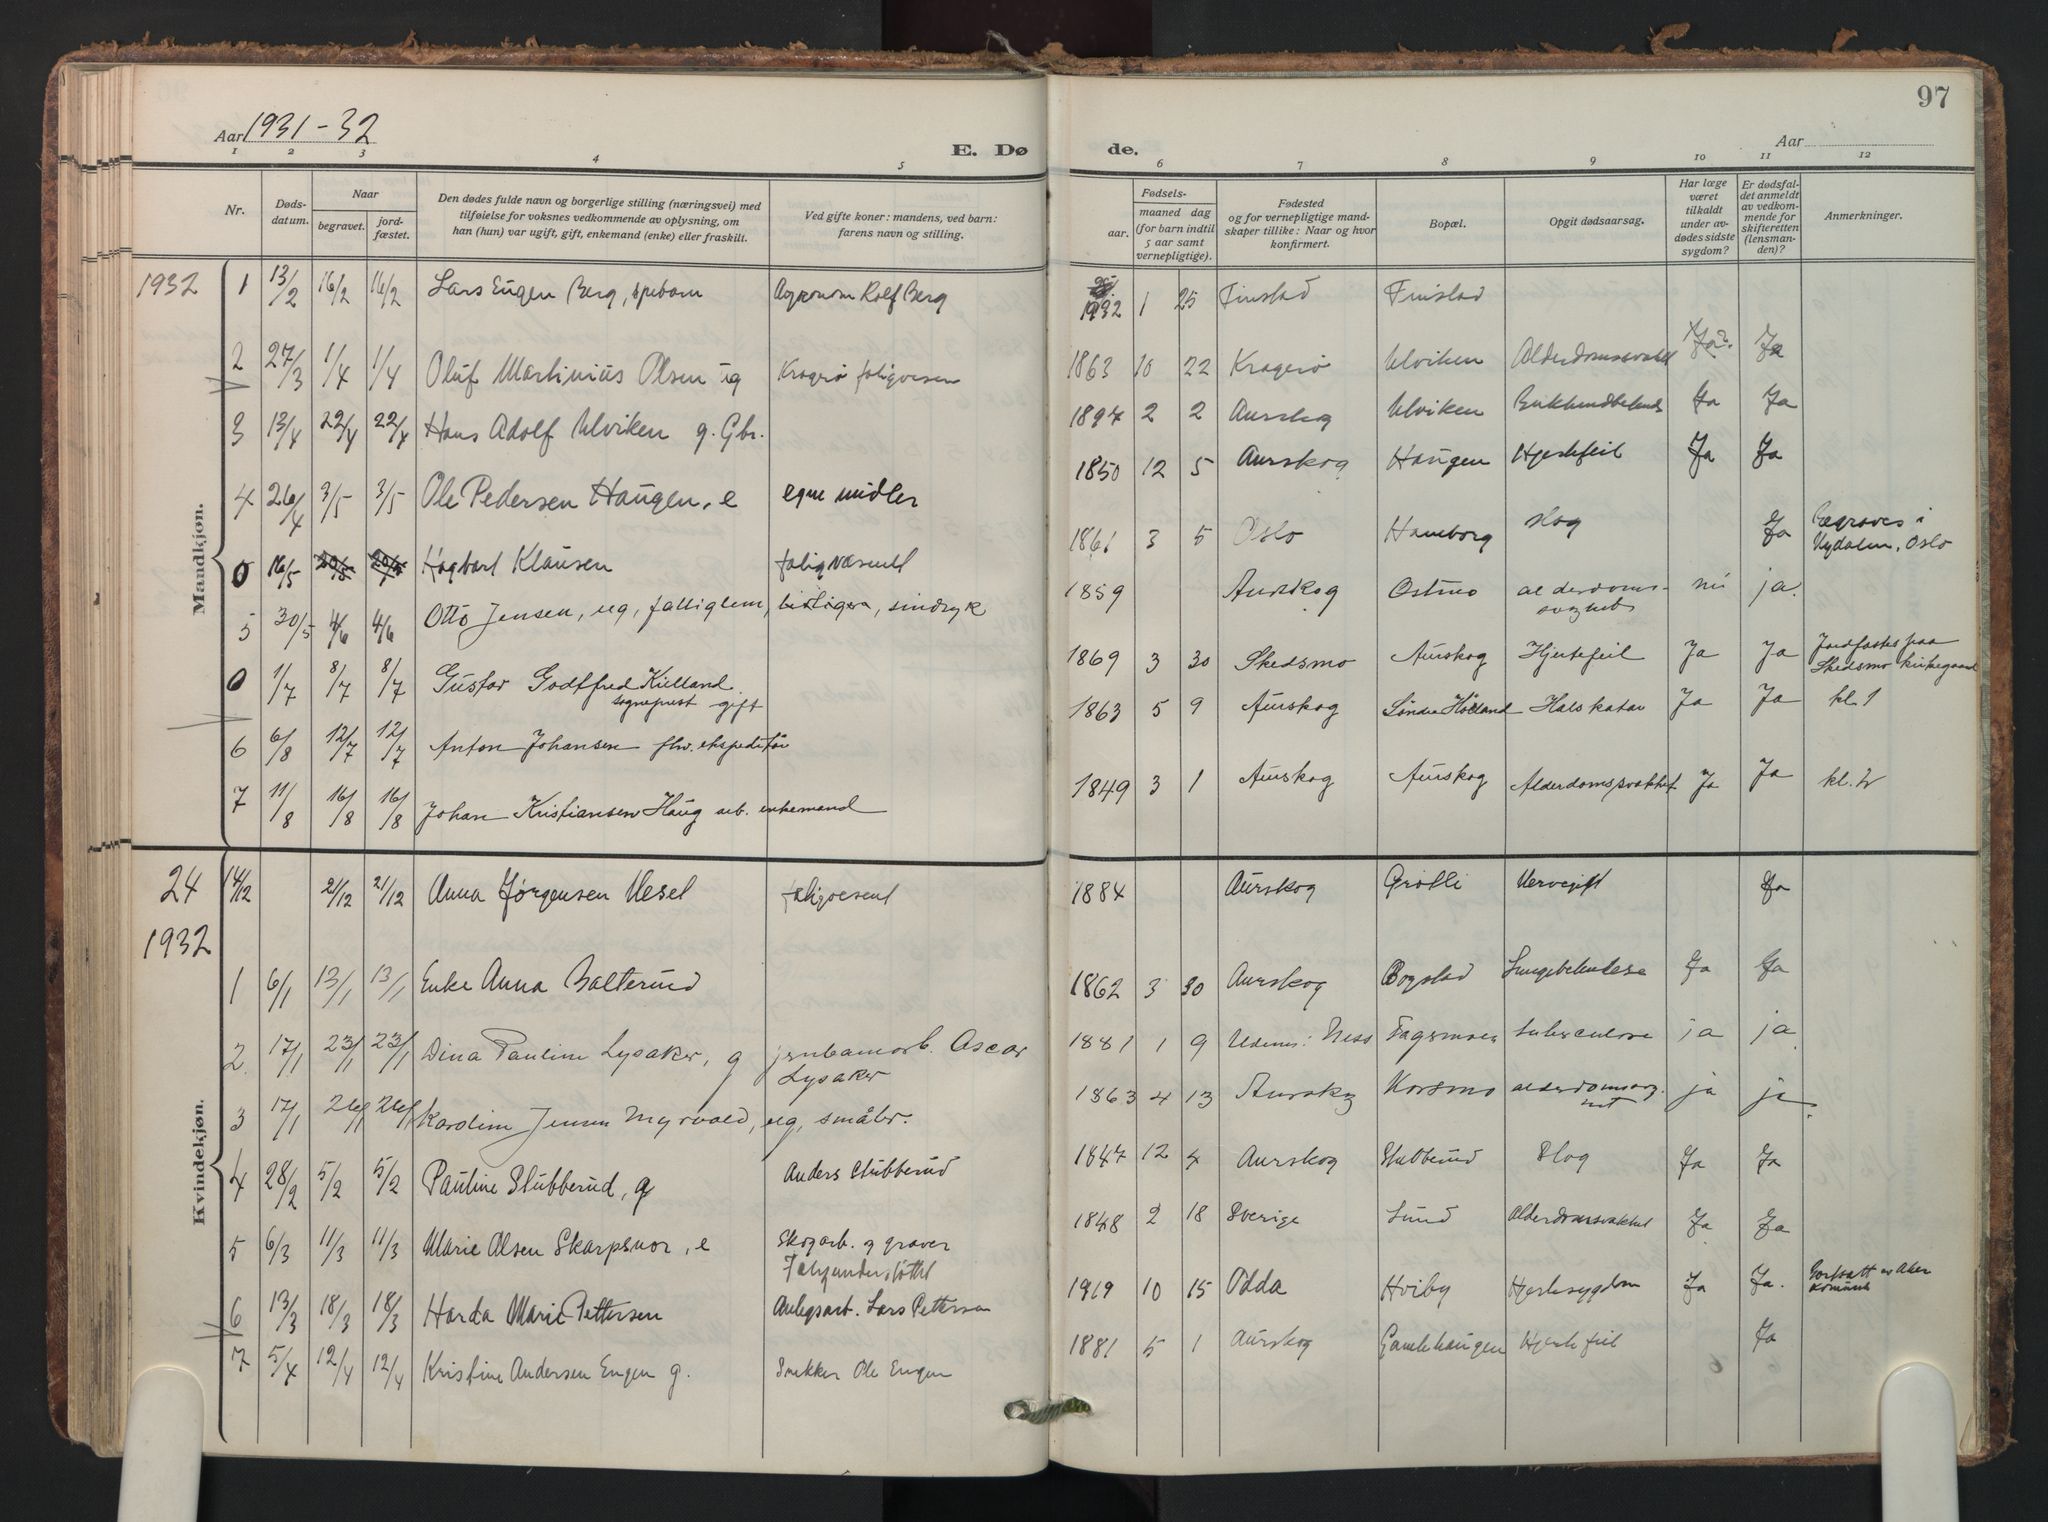 97
Aar 1931-32
E. Dø
de.
Aar
1 2 3 4 5
6 7 8 9 10 11 12
Nr.
Døds-
datum.
Naar
begravet.
jord-
fæstet.
Den dødes fulde navn og borgerlige stilling (næringsvei) med
tilføielse for voksnes vedkommende av oplysning, om
han (hun) var ugift, gift, enkemand (enke) eller fraskilt.
Ved gifte koner: mandens, ved barn:
farens navn og stilling.
Fødsels-
aar.
maaned dag
(for barn indtil
5 aar samt
vernepligtige).
Fødested
og for vernepligtige mand-
skaper tillike: Naar og hvor
konfirmert.
Bopæl.
Opgit dødsaarsag.
Har læge
været
tilkaldt
under av-
dødes sidste
sygdom?
Er dødsfal-
det anmeldt
av vedkom-
mende for
skifteretten
(lensman-
den)?
Anmerkninger.
Mandkjøn.
1932 1 13/2 16/2 16/2 Lars Eugen Berg, spebarn Agronom Rolf Berg 1932 1 25 Finstad Finstad
2 27/3 1/4 1/4 Oluf Martinius Olsen ug Kragerø fatigvesen 1863 10 22 Kragerø Ulviken Alderdomssvakhet Ja? Ja
3 13/4 22/4 22/4 Hans Adolf Ulviken g. Gbr. 1897 2 2 Aurskog Ulviken Ja Ja
4 26/4 3/5 3/5 Ole Pedersen Haugen, e egne midler 1850 12 5 Aurskog Haugen Hjertefeil Ja Ja
0 16/5 Hagbart Klausen fatigvæsenet 1861 3 5 Oslo Haneborg slag Ja Begraves i
Nydalen, Oslo
5 30/5 4/6 4/6 Otto Jensen, ug, fattiglem, sindsyk 1859 Aurskog Ostmo alderdoms-
svaghet nei ja.
0 1/7 8/7 8/7 Gustav Godtfred Kielland
sogneprest gift 1869 3 30 Skedsmo Aurskog Hjertefeil Ja Ja Jordfæstes paa
Skedsmo kirkegaard
6 6/8 12/7 12/7 Anton Johansen fhv. ekspeditør 1863 5 9 Aurskog Søndre Hølland Halskatar Ja Ja kl. 1
7 11/8 16/8 16/8 Johan Kristiansen Haug arb. enkemand 1849 3 1 Aurskog Aurskog Alderdomssvakhet Ja Ja kl. 2
Kvindekjøn.
24 14/12 21/12 21/12 Anna Jørgensen Vesel fatigvesenet 1884 Aurskog Grølli Nervegift Ja
1932
1 6/1 13/1 13/1 Enke Anna Balterud 1862 3 30 Aurskog Bogstad Lungebetendelse Ja Ja
2 17/1 23/1 23/1 Dina Pauline Lysaker, g jernbanearb. Oscar
Lysaker 1881 1 9 Udenes: Ness Fagermoen tuberculose ja ja
3 17/1 26/1 26/1 Karoline Jensen Myrvold, ug, småbr. 1863 4 13 Aurskog Korsmo ja ja.
4 28/2 5/2 5/2 Pauline Slubberud, g Anders Slubberud 1847 12 4 Aurskog Slubberud Slag Ja Ja
5 6/3 11/3 11/3 Marie Olsen Skarpsnor, e Skogarb. og graver
1848 2 18 Sverige Lund Alderdomssvakhet Ja Ja
6 13/3 18/3 18/3 Harda Marie Pettersen Anlegsarb. Lars Pettersen 1919 10 15 Odda Hviby Hjertesygdom Ja Ja. Bortsatt av Aker
kommune
7 5/4 12/4 12/4 Kristine Andersen Engen g. Snekker Ole Engen 1881 5 1 Aurskog Gamlehaugen Hjertefeil Ja